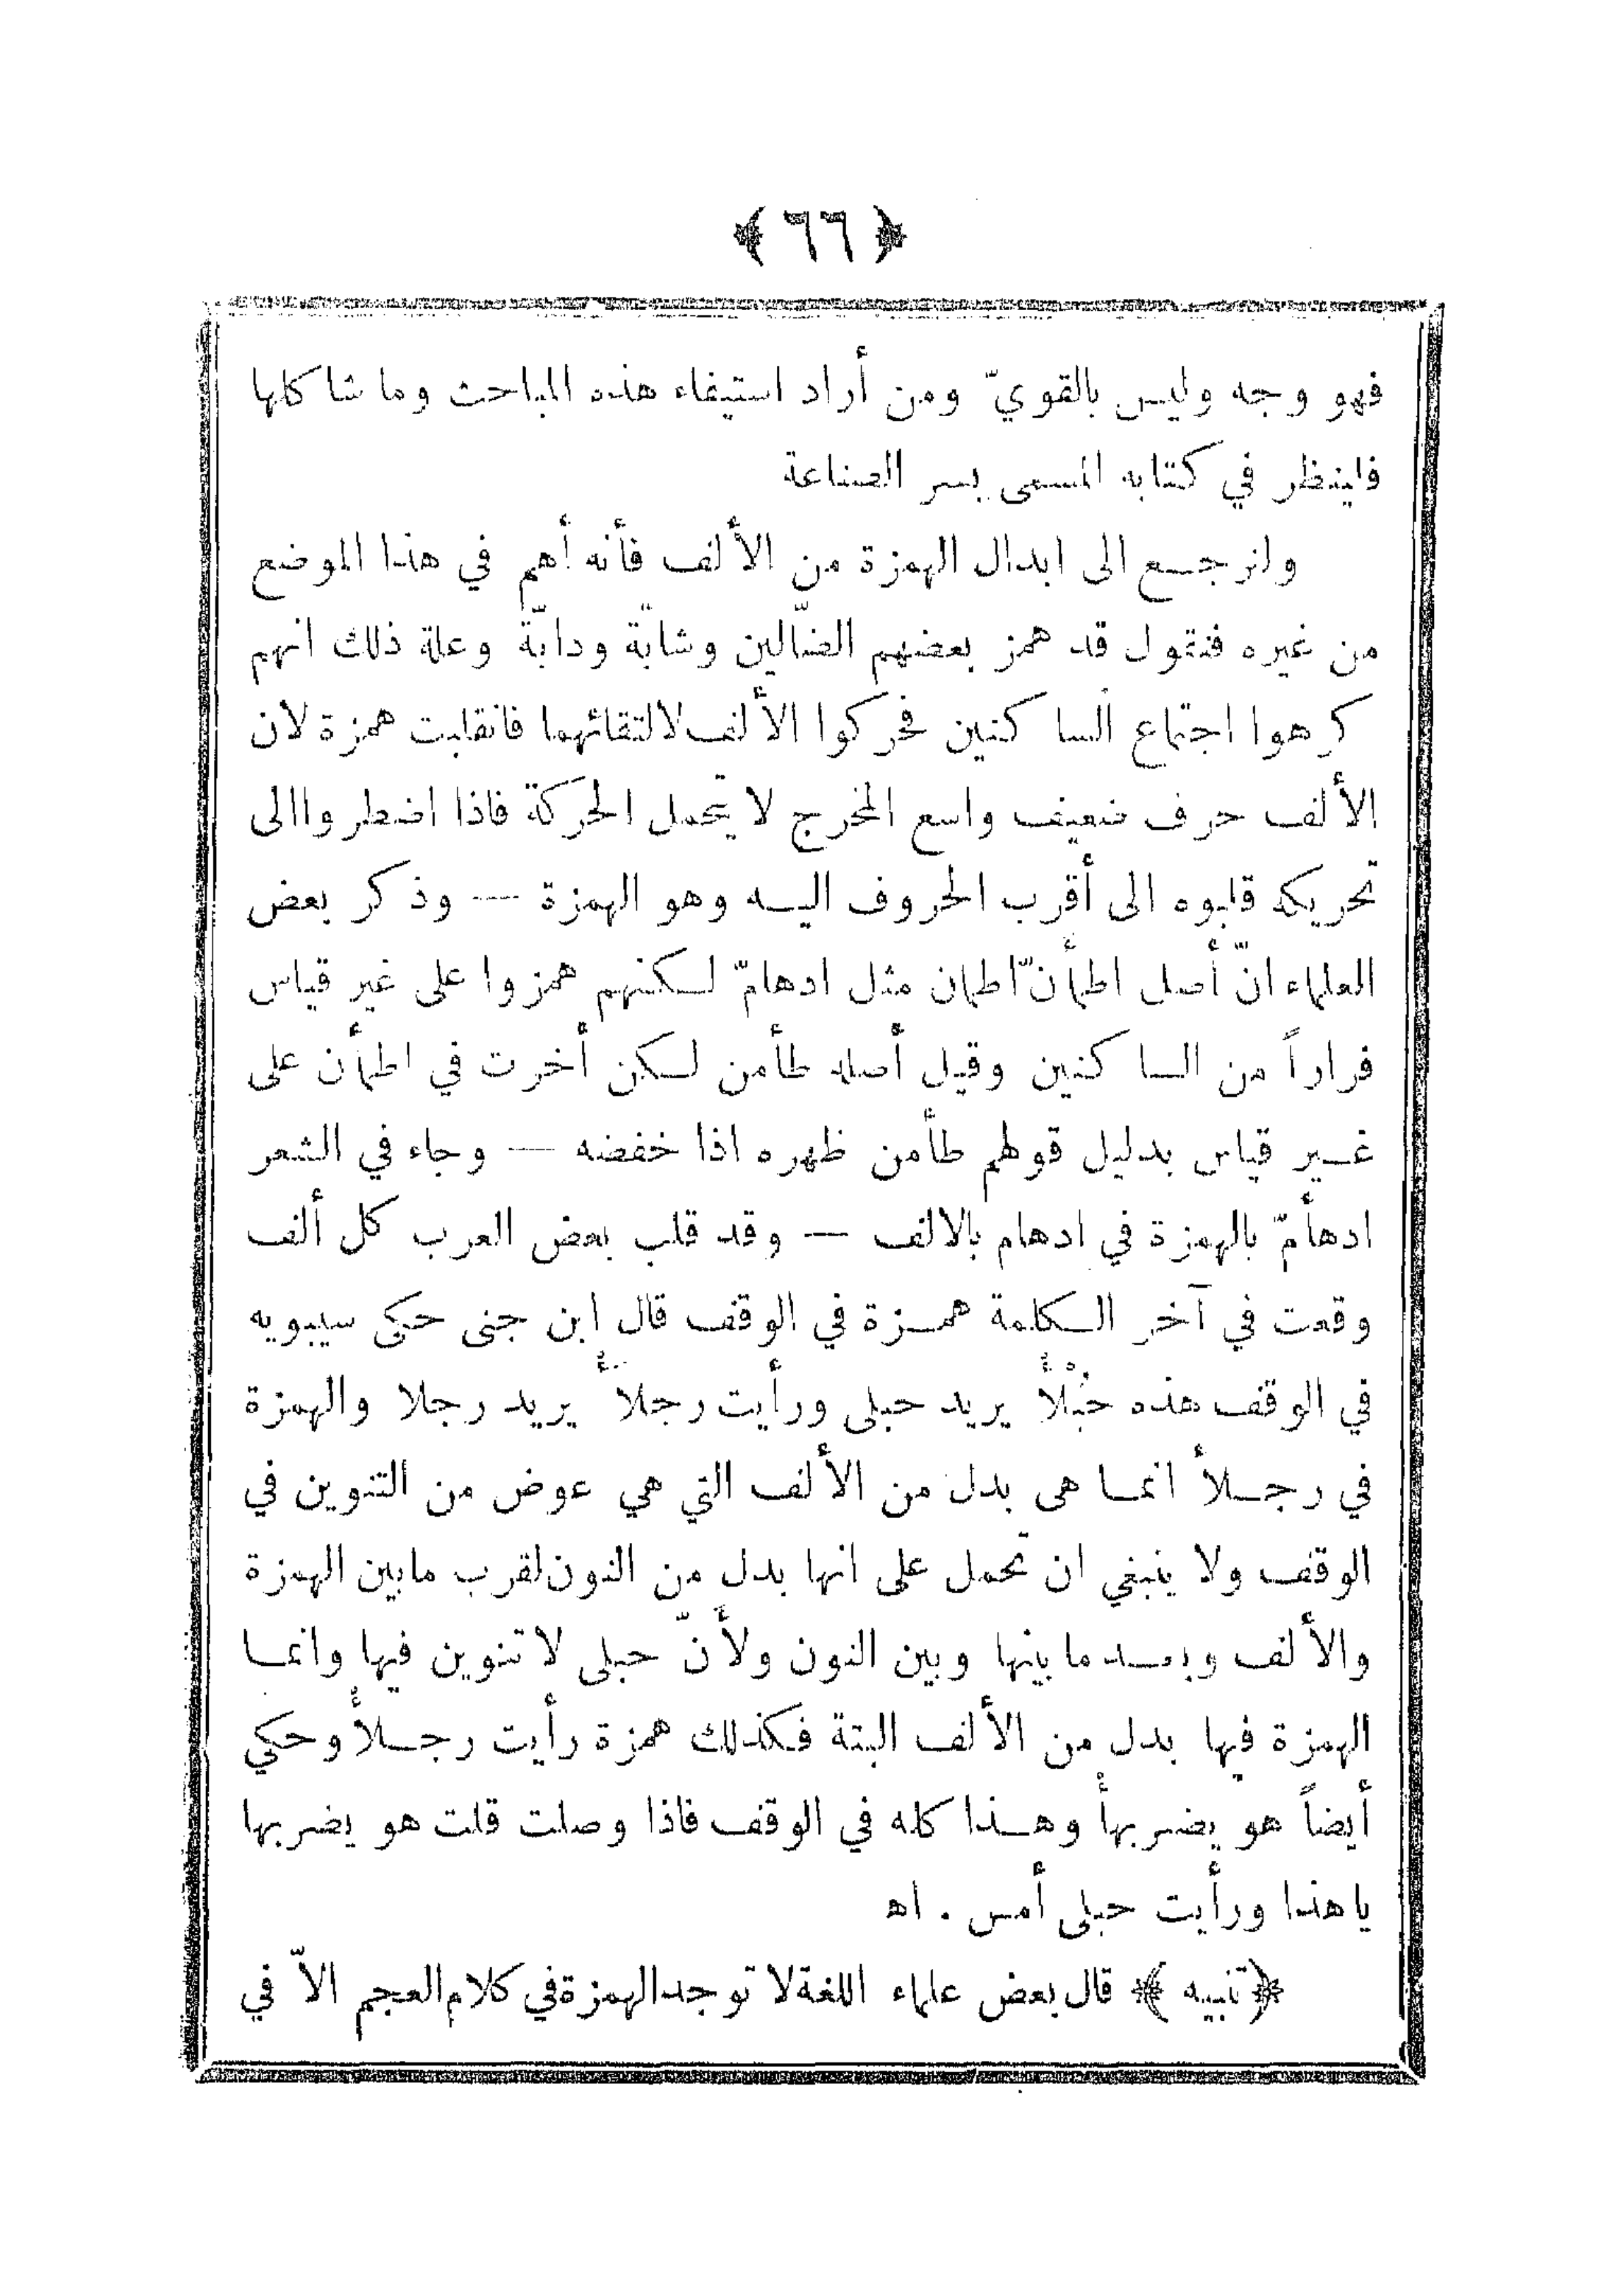 ﴿ ٦٦ ﴾
فهو وجه وليس بالقويّ ومن أراد استيفاء هذه المباحث وما شاكلها
فلينظر في كتابه المسمى بسر الصناعة
ولنرجع الى ابدال الهمزة من الألف فأنه أهم في هذا الموضع
من غيره فنقول قد همز بعضهم الضّالين وشابّة ودابّة وعلة ذلك انهم
كرهوا اجتماع الساكنين فحركوا الألف لالتقائهما فانقلبت همزة لان
الألف حرف ضعيف واسع المخرج لا يتحمل الحركة فاذا اضطروا الى
تحريكه قلبوه الى أقرب الحروف اليه وهو الهمزة — وذكر بعض
العلماء انّ أصل اطمأنّ اطمان مثل ادهامّ لكنهم همزوا على غير قياس
فراراً من الساكنين وقيل أصله طأمن لكن أخرت في اطمأن على
غير قياس بدليل قولهم طأمن ظهره اذا خفضه — وجاء في الشعر
ادهأمّ بالهمزة في ادهام بالالف — وقد قلب بعض العرب كل ألف
وقعت في آخر الكلمة همزة في الوقف قال ابن جنى حكى سيبويه
في الوقف هذه حُبْلأْ يريد حبلى ورأيت رجلأْ يريد رجلا والهمزة
في رجلأ انما هى بدل من الألف التي هي عوض من التنوين في
الوقف ولا ينبغي ان تحمل على انها بدل من النون لقرب مابين الهمزة
والألف وبعد مابينها وبين النون ولأنّ حبلى لا تنوين فيها وانما
الهمزة فيها بدل من الألف البتة فكذلك همزة رأيت رجلأْ وحكي
أيضاً هو يضربهأْ وهذا كله في الوقف فاذا وصلت قلت هو يضربها
ياهذا ورأيت حبلى أمس . اه
﴿ تنبيه ﴾ قال بعض علماء اللغة لا توجد الهمزة في كلام العجم الاّ في